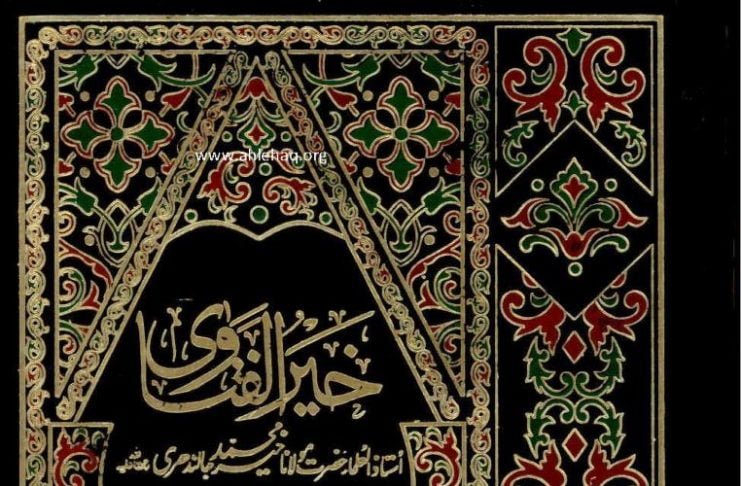 www.ahlehaq.org
خیر الفتاوی
استاذ العلماء حضرت مولانا خیر محمد جالندھری